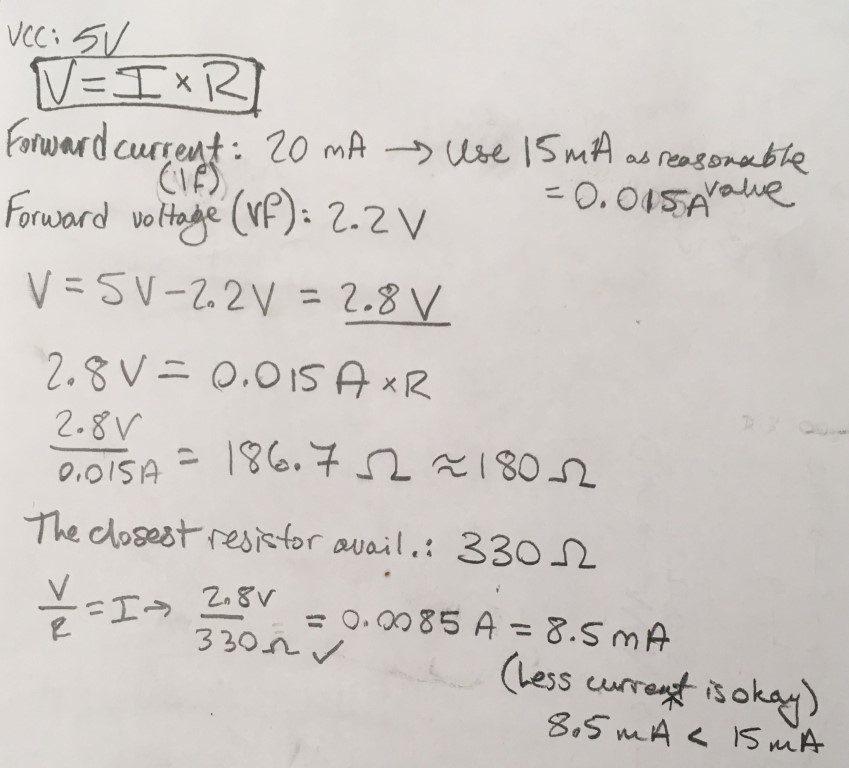 VCC: 5V
V = I × R
Forward current: 20 mA → Use 15mA as reasonable
(If) = 0.015A value
Forward voltage (Vf): 2.2 V
V = 5V - 2.2V = 2.8 V
2.8 V = 0.015 A × R
2.8V
0.015A = 186.7 Ω ≈ 180 Ω
The closest resistor avail.: 330 Ω
V/R = I → 2.8V/330Ω ✓ = 0.0085 A = 8.5 mA
(Less current is okay)
8.5 mA < 15 mA